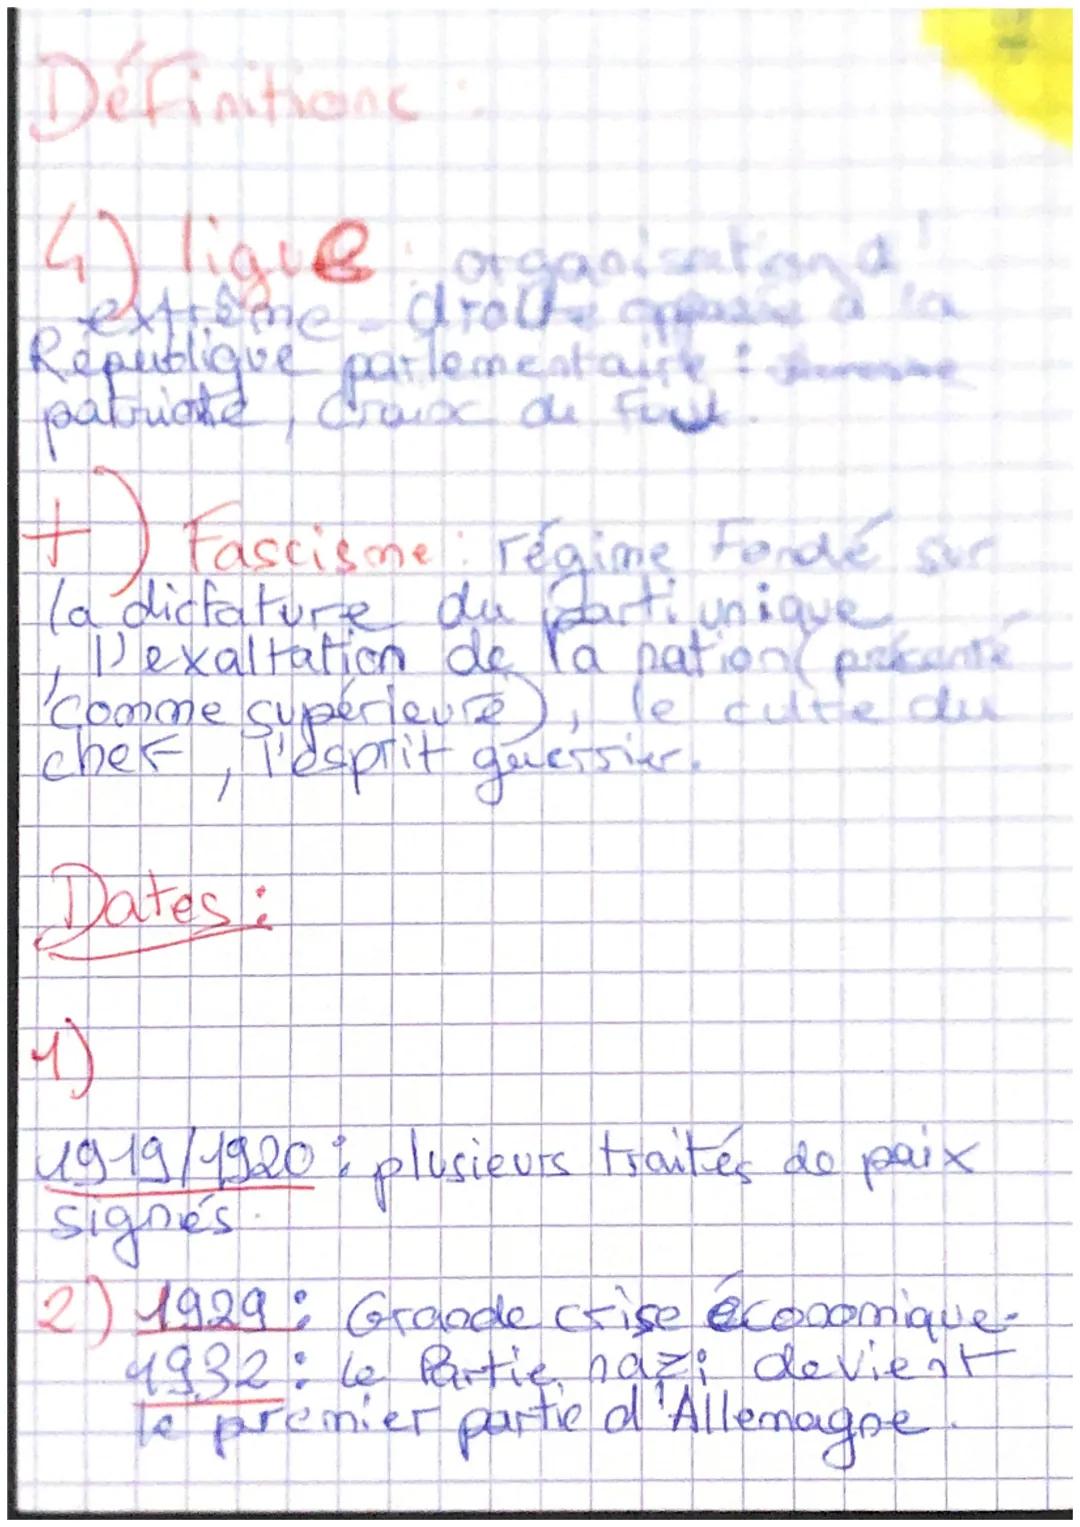 Définitions :
4) ligue : organisation d'
extrême-droite opposée à la
République parlementaire :
patriote, Croix de Feu.
+) Fascisme : régime Fondé sur
la dictature du parti unique
, l'exaltation de la nation (
comme supérieure), le culte du
chef, l'esprit guerrier.
Dates :
1)
1919/1920 : plusieurs traités de paix
signés.
2) 1929 : Grande crise économique.
1932 : le Partie nazi devient
le premier partie d'Allemagne.